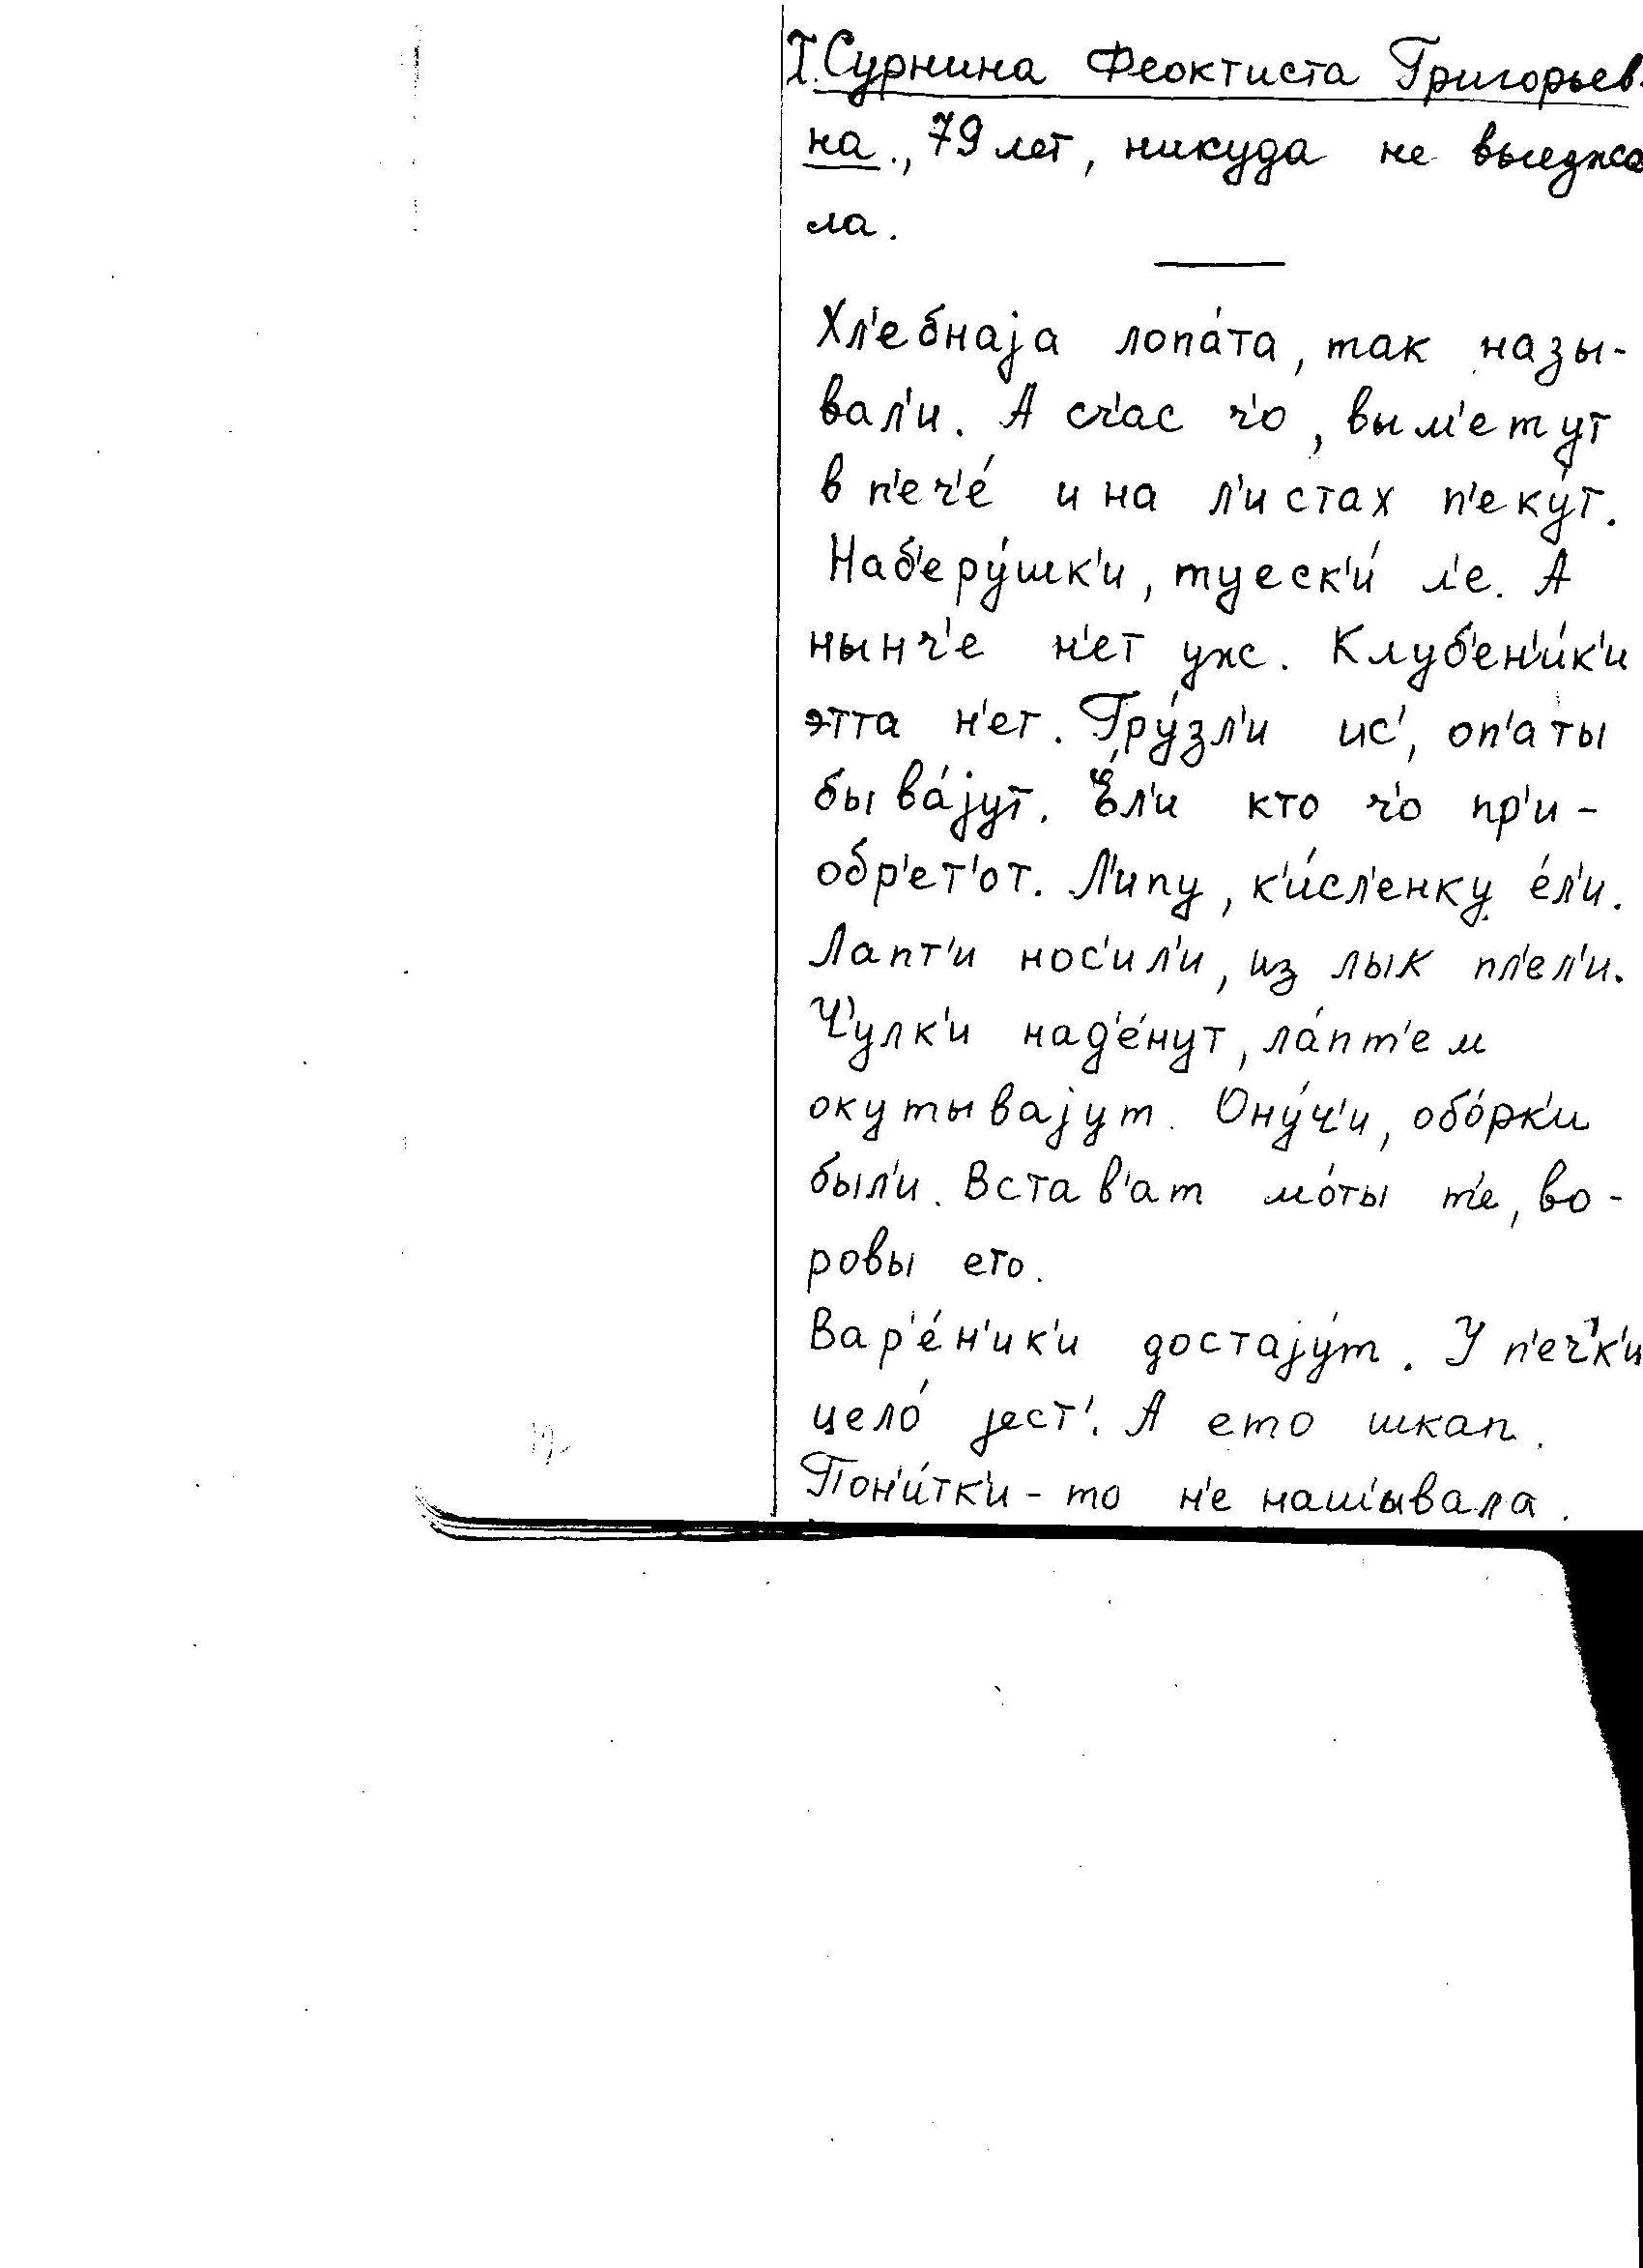 I. Сурнина Феоктиста Григорьев-
на., 79 лет, никуда не выеджа
ла.
Хл'ебнаjа лопа́та, так назы-
вал'и. А сч'ас ч'о, вым'етут
в п'еч'е́ и на л'истах п'еку́т.
Наб'еру́шк'и, туеск'и́ л'е. А
нынч'е н'ет уж. Клуб'ен'и́к'и
этта н'ет. Гру́зл'и ис', оп'аты
быва́jут. Е́л'и кто ч'о пр'и-
обр'ет'от. Л'ипу, к'и́сл'енку е́л'и.
Лапт'и нос'ил'и, из лык пл'ел'и.
Ч'улк'и над'е́нут, ла́пт'ем
окутываjут. Ону́ч'и, обо́рк'и
был'и. Встав'ат мо́ты т'е, во-
ровы ето.
Вар'е́н'ик'и достаjу́т. У п'еч'к'и
цело́ jест'. А ето шкап.
Пон'и́тк'и-то н'е наш'ывала.